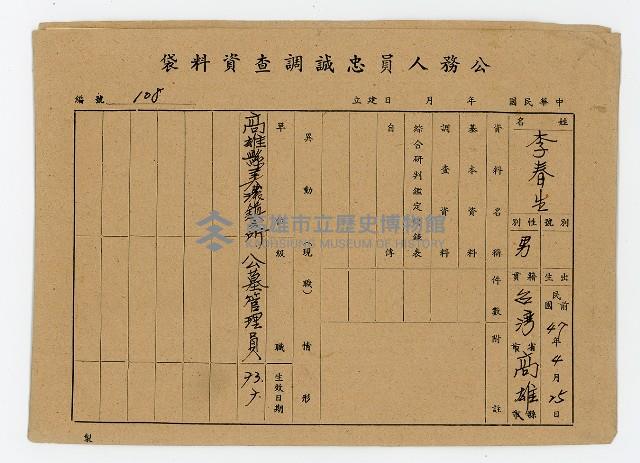 公務人員忠誠調查資料袋
編號 108
中華民國 年 月 日建立
姓名 李春生
別號
性別 男
出生 民國前 47年4月25日
籍貫 台灣省 高雄縣
資料名稱 件數 附註
基本資料
調查資料
綜合研判鑑定紀錄表
自傳
異動(現職)情形
單位 級職 生效日期
高雄縣美濃鎮所 公墓管理員 73.7.
高雄市立歷史博物館
KAOHSIUNG MUSEUM OF HISTORY
製